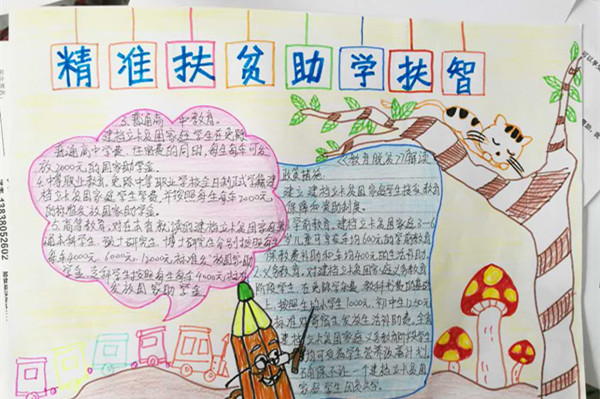 精准扶贫助学扶智
3.普通高中教育。
建档立卡贫困家庭学生在免除
普通高中学费、住宿费的同时,每生每年可发
放2000元的国家助学金。
4.中等职业教育。免除中等职业学校全日制正式学籍建
档立卡贫困家庭学生学费,并按照每生每年2000元
的标准发放国家助学金。
5.高等教育。对在本省就读的建档立卡贫困家庭普
通本科学生、硕士研究生、博士研究生分别按照每生
每年4000元、6000元、12000元标准发放国家助
学金,专科学生按照每生每年4000元标准
发放国家助学金
《教育脱贫》解读
政策措施:
建立建档立卡贫困家庭学生接受教育
保障和资助制度。
学前教育。对建档立卡贫困家庭3-6
岁儿童可享受年均600元的学前教育
保教费补助和年均400元的生活补助。
2.义务教育。对建档立卡贫困家庭义务教育
阶段学生,在免除学杂费、教科书费的基础
上,按照年均小学生1000元、初中生1250元
标准对寄宿生发放生活补助费,全省
建档立卡贫困家庭义务教育阶段学生
均可享受学生营养改善计划,
确保不让一个建档立卡贫困
家庭学生因贫失学。
13838052602